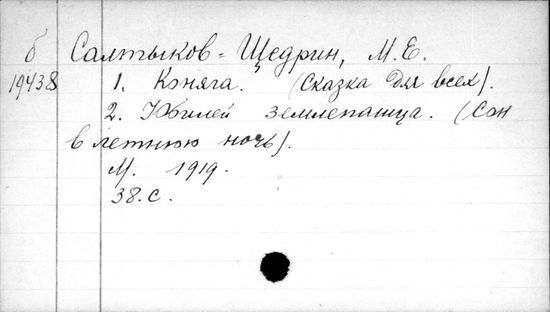 б Салтыков-Щедрин, М.Е.
19438 1. Коняга. (Сказка для всех).
2. Юбилей землепашца. (Сон
в летнюю ночь).
М. 1919.
38.с.